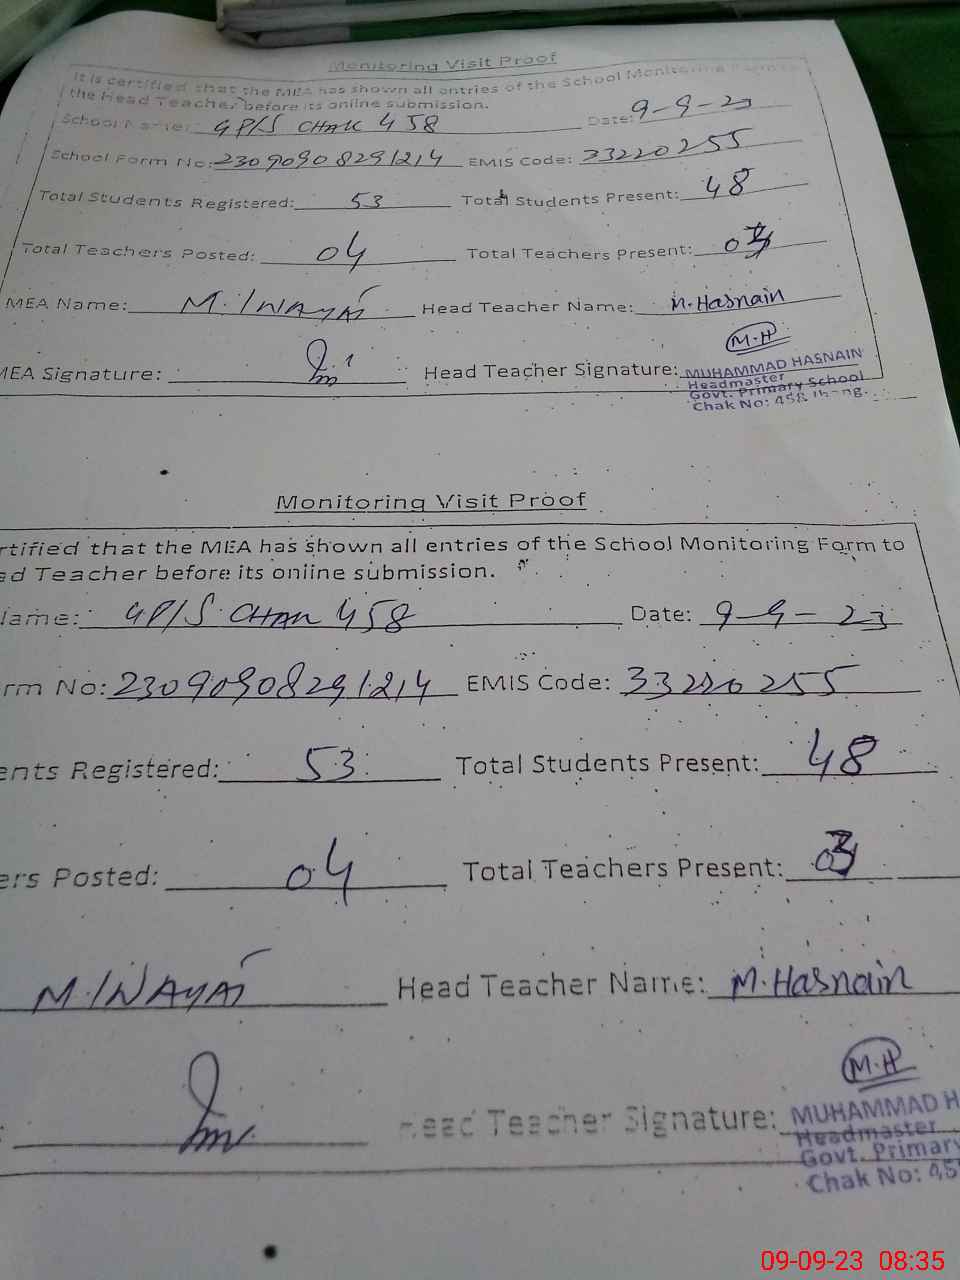 Monitoring Visit Proof
It is certified that the MEA has shown all entries of the School Monitoring Form to
the Head Teacher before its online submission.
School Name: GP/S CHAK 458 Date: 9-9-23
School Form No: 23090908291214 EMIS Code: 33220255
Total Students Registered: 53 Total Students Present: 48
Total Teachers Posted: 04 Total Teachers Present: 03
MEA Name: M. INAYAT Head Teacher Name: M. Hasnain
M.H
MEA Signature: Head Teacher Signature: MUHAMMAD HASNAIN
Headmaster
Govt. Primary School
Chak No: 458 Jhang.
Monitoring Visit Proof
rtified that the MEA has shown all entries of the School Monitoring Form to
ad Teacher before its online submission.
Name: GP/S CHAK 458 Date: 9-9-23
rm No: 23090908291214 EMIS Code: 33220255
ents Registered: 53 Total Students Present: 48
ers Posted: 04 Total Teachers Present: 03
M. INAYAT Head Teacher Name: M. Hasnain
M.H
Head Teacher Signature: MUHAMMAD H
Headmaster
Govt. Primary
Chak No: 45
09-09-23 08:35